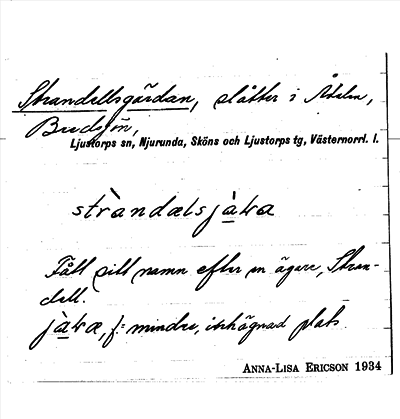 Strandellsgärdan, slåtter i Åkeln,
Budsjön,
Ljustorps sn, Njurunda, Sköns och Ljustorps tg, Västernorrl. l.
stràndælsjàka
Fått sitt namn efter en ägare, Stran-
dell.
jàka, f: mindre, inhägnad plats
ANNA-LISA ERICSON 1934